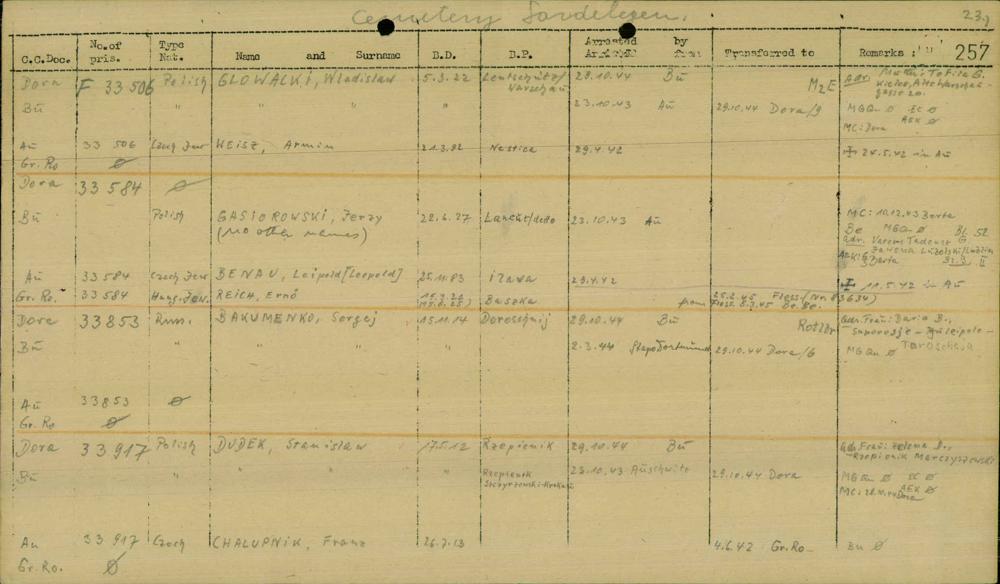 Cemetery Gardelegen.
23.)
C.C.Doc. No.of pris. Type Nat. Name and Surname B.D. B.P. Arrested Arrived by from Transferred to Remarks : 257
Dora F 33 506 Polish GLOWALKI, Wladislaw 5.3.22 Lentschütz/ Warschau 28.10.44 Bü M2E Adr. Mutter: Tofila G.
Bü " " " " 23.10.43 Au 29.10.44 Dora/9 MGQu Ø EC Ø
AEK Ø
MC: Dora
Au 33 506 Czech Jew WEISZ, Armin 21.3.82 Nestica 29.4.42 ✝ 24.5.42 in Au
Gr. Ro Ø
Dora 33 584 Ø
Bü Polish GASIOROWSKI, Jerzy 22.6.27 Lancut/detto 23.10.43 Au MC: 10.12.43 Barta
(no other names) Be MGQu Ø Bl 52
Adr.
Au 33 584 Czech Jew BENAU, Leipold [Leopold] 25.11.83 Izawa 29.4.42 ✝ 11.5.42 in Au
Gr. Ro. 33 584 Hung. Jew. REICH, Ernö Baszka from 25.2.45 Floss./Nr. 83634)
Floss. 8.3.45 Be. Be.
Dora 33853 Russ. BAKUMENKO, Sergej 15.11.14 Doroschnij 29.10.44 Bü Rotlbr Adr. Frau: Daria B.,
Saporosje - Guleipole -
Bü " " " " 2.3.44 Stapo Dortmund 29.10.44 Dora/6 MGQu Ø Taroscheia
Au 33853 Ø
Gr. Ro Ø
Dora 33917 Polish DUDEK, Stanislaw 17.5.12 Rzepienik 29.10.44 Bü Adr. Frau: Helena D.,
Rzepienik Marczyszewski
Bü " " " " Rzepienik 23.10.43 Auschwitz 29.10.44 Dora MGQu Ø EC Ø
AEK Ø
MC: 28.10.44 Dora
Au 33 917 Czech CHALUPNIK, Franz 26.7.13 4.6.42 Gr. Ro- Bü Ø
Gr. Ro. Ø